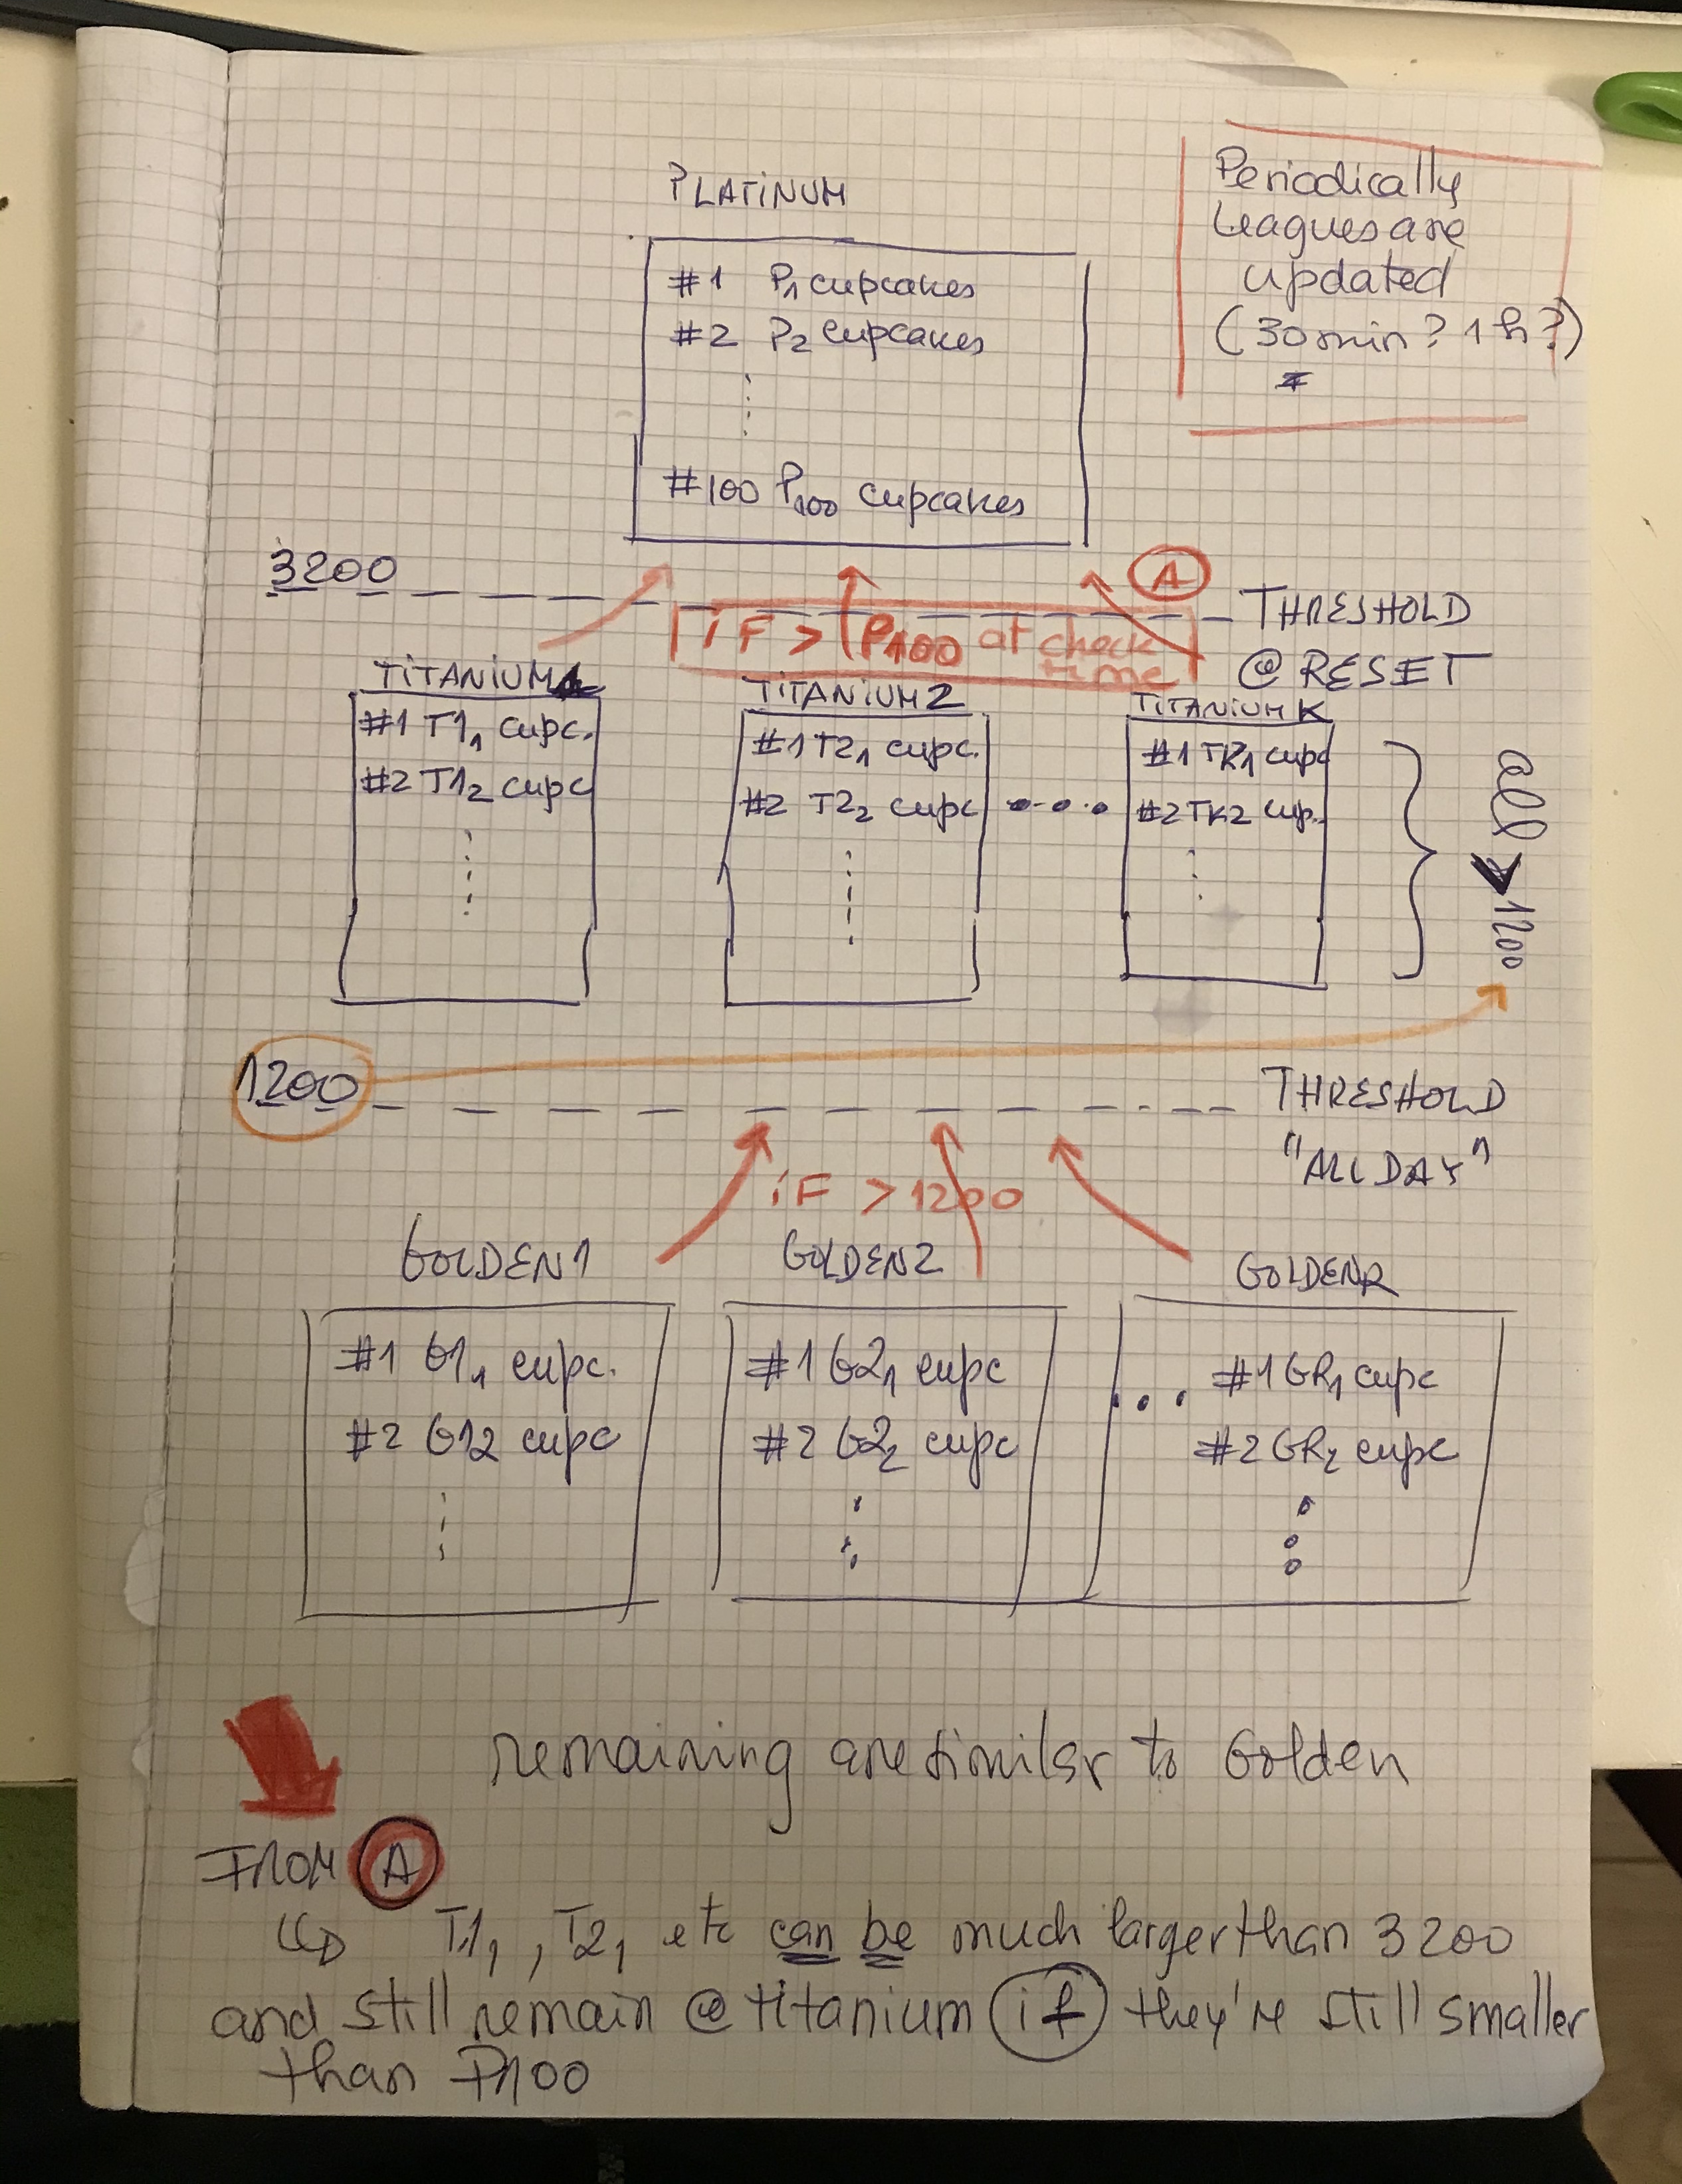 PLATINUM
#1 P1 cupcakes
#2 P2 cupcakes
#100 P100 cupcakes
Periodically
Leagues are
updated
(30 min? 1 h?)
3200
A
THRESHOLD
@ RESET
iF > P100 at check
time
TiTANiUM1
#1 T11 cupc.
#2 T12 cupc
TiTANIUM2
#1 T21 cupc.
#2 T22 cupc
....
TiTANiUM K
#1 TK1 cupc
#2 TK2 cup.
all > 1200
1200
THRESHOLD
"ALL DAY"
iF > 1200
GOLDEN1
#1 G11 cupc.
#2 G12 cupc
GOLDEN2
#1 G21 cupc
#2 G22 cupc
...
GOLDENR
#1 GR1 cupc
#2 GR2 cupc
remaining are similar to Golden
FROM A
T11, T21 etc can be much larger than 3200
and still remain @ titanium if they're still smaller
than P100